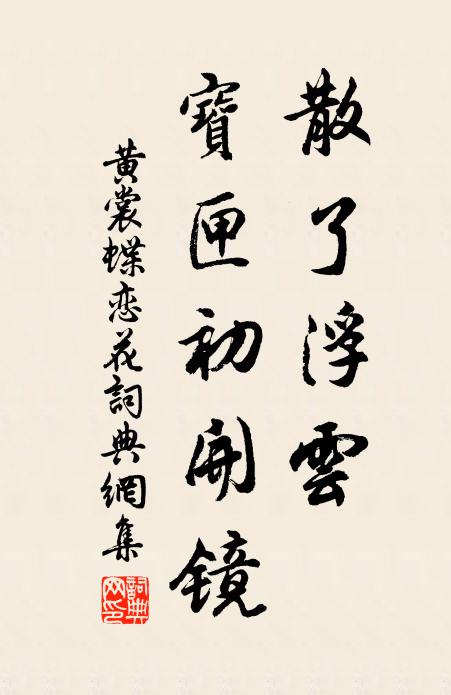 散了浮雲
寶匣初開鏡
黄裳蝶恋花詞典網集
詞典网印